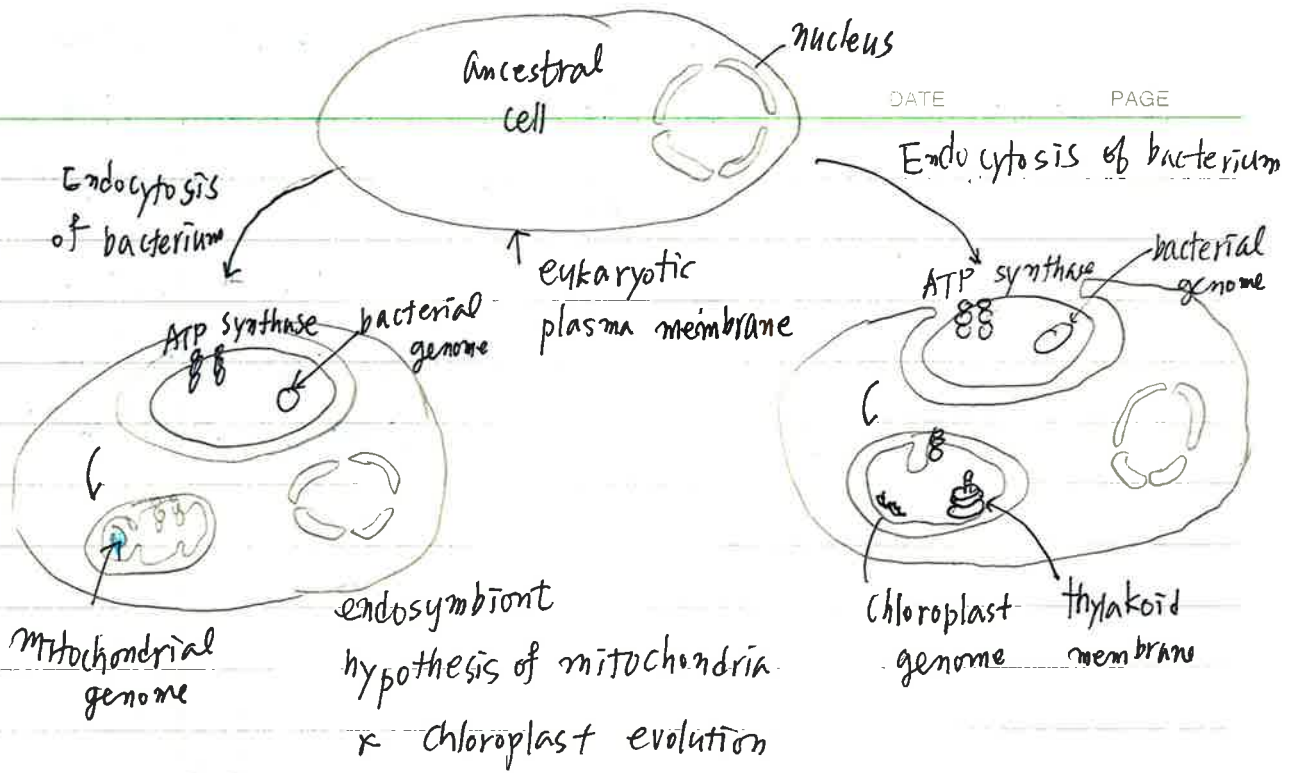 Ancestral
cell
nucleus
DATE
PAGE
Endocytosis
of bacterium
Endocytosis of bacterium
eukaryotic
plasma membrane
ATP synthase
bacterial
genome
ATP synthase
bacterial
genome
Mitochondrial
genome
endosymbiont
hypothesis of mitochondria
& chloroplast evolution
chloroplast
genome
thylakoid
membrane